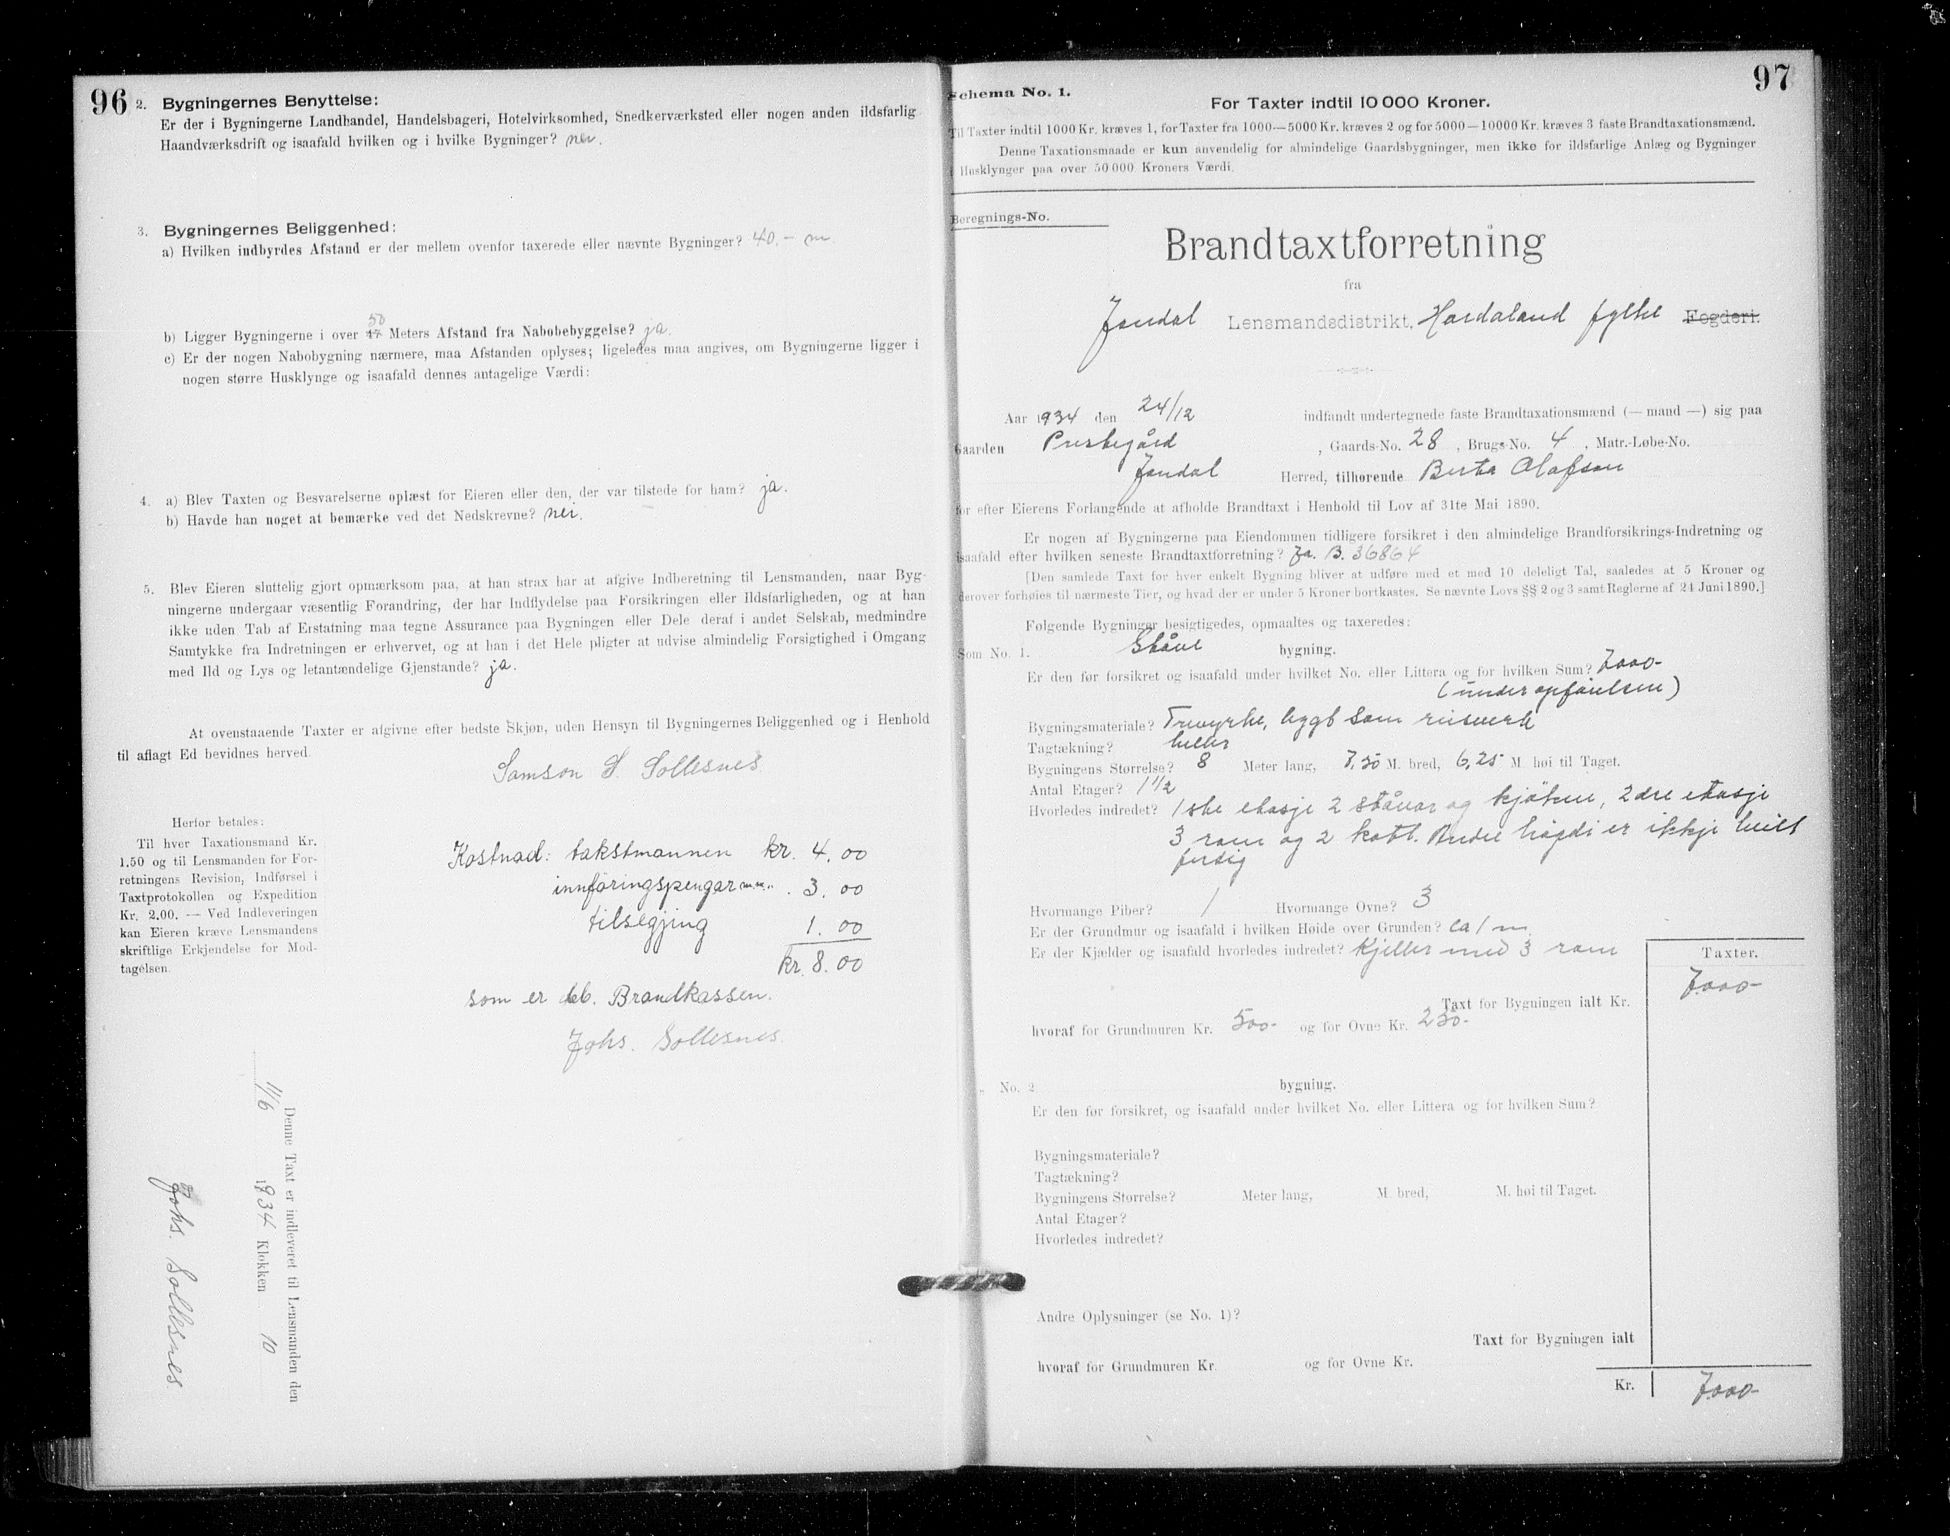 96
2. Bygningernes Benyttelse:
Er der i Bygningerne Landhandel, Handelsbageri, Hotelvirksomhed, Snedkerværksted eller nogen anden ildsfarlig
Haandværksdrift og isaafald hvilken og i hvilke Bygninger? nei.
3. Bygningernes Beliggenhed:
a) Hvilken indbyrdes Afstand er der mellem ovenfor taxerede eller nævnte Bygninger? 40.- m.
50
b) Ligger Bygningerne i over Meters Afstand fra Nabobebyggelse? ja.
c) Er der nogen Nabobygning nærmere, maa Afstanden oplyses; ligeledes maa angives, om Bygningerne ligger i
nogen større Husklynge og isaafald dennes antagelige Værdi:
4. a) Blev Taxten og Besvarelserne oplæst for Eieren eller den, der var tilstede for ham? ja.
b) Havde han noget at bemærke ved det Nedskrevne? nei.
5. Blev Eieren sluttelig gjort opmærksom paa, at han strax har at afgive Indberetning til Lensmanden, naar Byg-
ningerne undergaar væsentlig Forandring, der har Indflydelse paa Forsikringen eller Ildsfarligheden, og at han
ikke uden Tab af Erstatning maa tegne Assurance paa Bygningen eller Dele deraf i andet Selskab, medmindre
Samtykke fra Indretningen er erhvervet, og at han i det Hele pligter at udvise almindelig Forsigtighed i Omgang
med Ild og Lys og letantændelige Gjenstande? ja.
At ovenstaaende Taxter er afgivne efter bedste Skjøn, uden Hensyn til Bygningernes Beliggenhed og i Henhold
til aflagt Ed bevidnes herved.
Samson S. Sollesnes
Herfor betales:
Til hver Taxationsmand Kr.
1.50 og til Lensmanden for For-
retningens Revision, Indførsel i
Taxtprotokollen og Expedition
Kr. 2.00. — Ved Indleveringen
kan Eieren kræve Lensmandens
skriftlige Erkjendelse for Mod-
tagelsen.
Kostnad: takstmannen kr. 4.00
innføringspengar " 3.00
tilsegjing 1.00
kr. 8.00
som er deb. Brandkassen.
Johs. Sollesnes.
Denne Taxt er indleveret til Lensmanden den
11/6 1934 Klokken 10
Johs. Sollesnes.
97
Schema No. 1.
For Taxter indtil 10 000 Kroner.
Til Taxter indtil 1000 Kr. kræves 1, for Taxter fra 1000—5000 Kr. kræves 2 og for 5000—10000 Kr. kræves 3 faste Brandtaxationsmænd.
Denne Taxationsmaade er kun anvendelig for almindelige Gaardsbygninger, men ikke for ildsfarlige Anlæg og Bygninger
i Husklynger paa over 50 000 Kroners Værdi.
Beregnings-No.
Brandtaxtforretning
fra
Jondal Lensmandsdistrikt, Hordaland fylke Fogderi.
Aar 1934 den 24/12 indfandt undertegnede faste Brandtaxationsmænd (— mand —) sig paa
Gaarden Prestegård , Gaards-No. 28 , Brugs-No. 4 , Matr.-Løbe-No.
Jondal Herred, tilhørende Berta Olafsen
for efter Eierens Forlangende at afholde Brandtaxt i Henhold til Lov af 31te Mai 1890.
Er nogen af Bygningerne paa Eiendommen tidligere forsikret i den almindelige Brandforsikrings-Indretning og
isaafald efter hvilken seneste Brandtaxtforretning? Ja. B. 36864
[Den samlede Taxt for hver enkelt Bygning bliver at udføre med et med 10 deleligt Tal, saaledes at 5 Kroner og
derover forhøies til nærmeste Tier, og hvad der er under 5 Kroner bortkastes. Se nævnte Lovs §§ 2 og 3 samt Reglerne af 24 Juni 1890.]
Følgende Bygninger besigtigedes, opmaaltes og taxeredes:
Som No. 1. Ståve bygning.
Er den før forsikret og isaafald under hvilket No. eller Littera og for hvilken Sum? 7000-
(under opførelsen)
Bygningsmateriale? Trevyrke, bygt som reisverk
Tagtækning? heller
Bygningens Størrelse? 8 Meter lang, 7,50 M. bred, 6,25 M. høi til Taget.
Antal Etager? 1 1/2
Hvorledes indredet? 1ste etasje 2 ståvar og kjøken, 2dre etasje
3 rom og 2 kott. Andre høgdi er ikkje heilt
ferdig
Hvormange Piber? 1 Hvormange Ovne? 3
Er der Grundmur og isaafald i hvilken Høide over Grunden? ca 1 m.
Er der Kjælder og isaafald hvorledes indredet? Kjeller med 3 rom
Taxter.
7000-
Taxt for Bygningen ialt Kr.
hvoraf for Grundmuren Kr. 500- og for Ovne Kr. 250-
„ No. 2 bygning.
Er den før forsikret, og isaafald under hvilket No. eller Littera og for hvilken Sum?
Bygningsmateriale?
Tagtækning?
Bygningens Størrelse? Meter lang, M. bred, M. høi til Taget.
Antal Etager?
Hvorledes indredet?
Andre Oplysninger (se No. 1)?
Taxt for Bygningen ialt
hvoraf for Grundmuren Kr. og for Ovne Kr.
Kr. 7000-